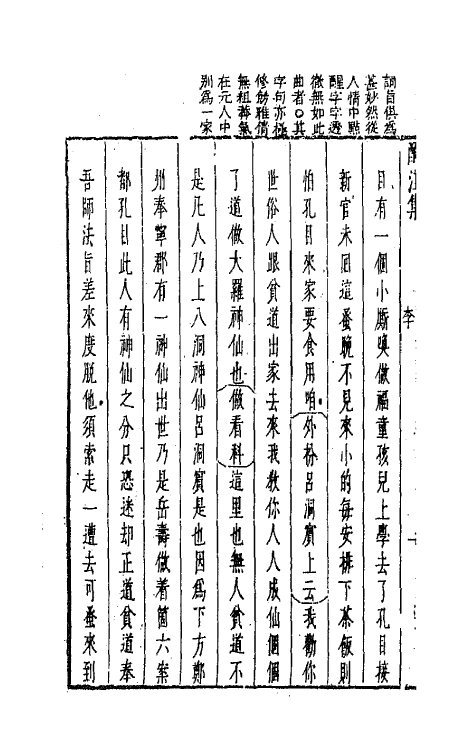 詞旨俱爲
甚妙然從
人情中點
醒字字透
徹無如此
曲者○其
字句亦極
修飭雅
無粗莽氣
在元人中
別爲一家
酹江集 李
目有一個小厮喚做福童孩兒上學去了孔目接
新官未回這蚤晚不見來小的每安排下茶飯則
怕孔目來家要食用咱（外扮呂洞賓上云）我勸你
世俗人跟貧道出家去來我教你人人成仙個個
了道做大羅神仙也（做看科）這里也無人貧道不
是凡人乃上八洞神仙呂洞賓是也因爲下方鄭
州奉寧郡有一神仙出世乃是岳壽做着箇六案
都孔目此人有神仙之分只恐迷却正道貧道奉
吾師法旨差來度脫他須索走一遭去可蚤來到